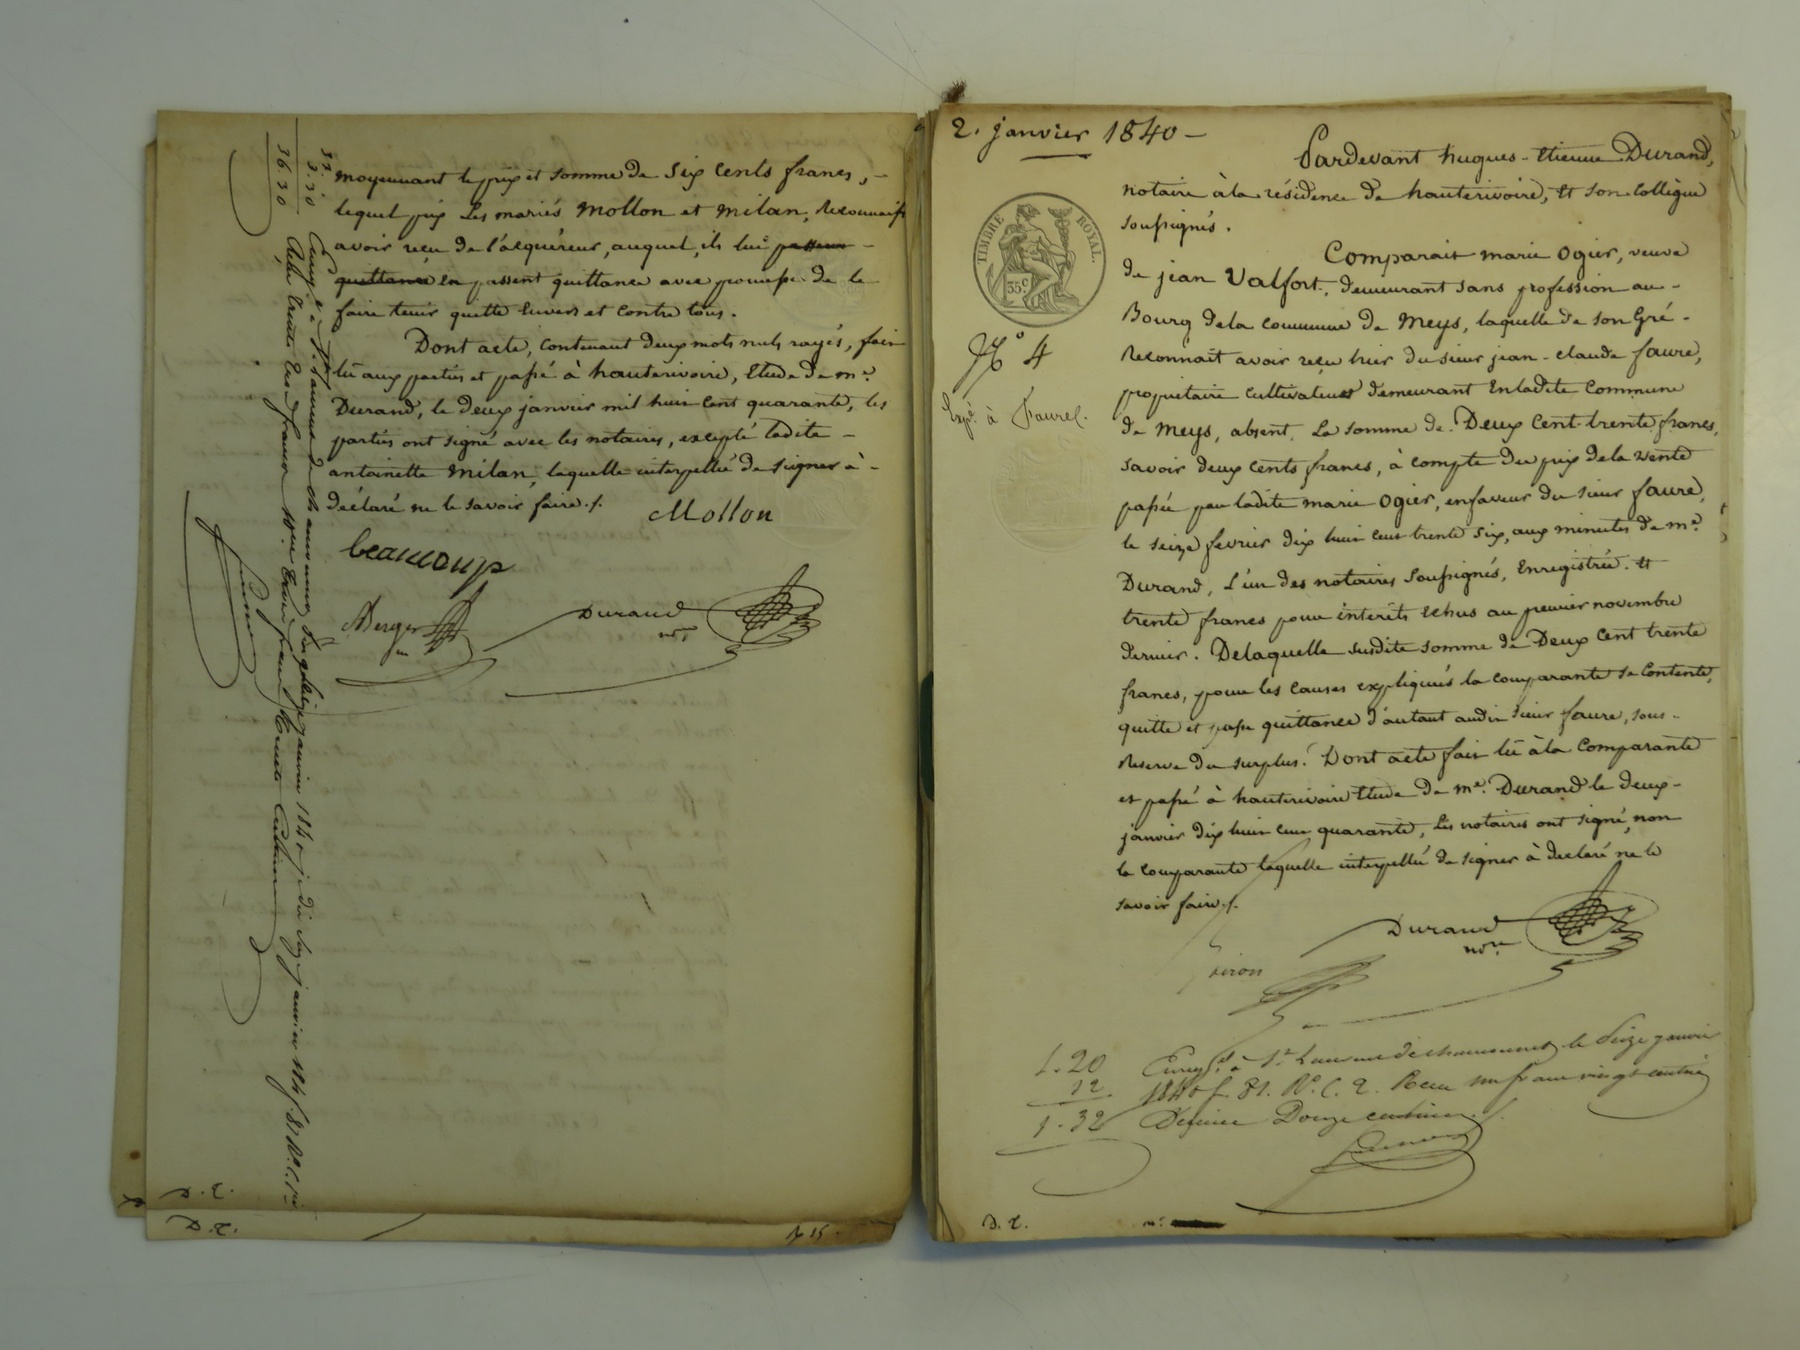 moyennant le prix et somme de Six Cents francs, -
lequel prix les mariés Mollon et Milan, Reconnaiss
avoir reçu de l'acquéreur, auquel, ils lui passeur -
quittance en passent quittance avec promesse de le
faire tenir quitte Envers et Contre tous.
Dont acte, contenant deux mots nuls rayés, fair
lû aux parties et passé à hauterivoire, Etude de me.
Durand, le deux janvier mil huit Cent quarante, les
parties ont signé avec les notaires, excepté ladite -
antoinette Milan, laquelle interpellée de signer à -
déclaré ne le savoir faire ./.
Mollon
beaucoup
Durand
nore
33.
3.30
36.30
D. E.
D. E.
2. janvier 1840 -
Pardevant hugues - Etienne Durand,
notaire à la résidence de hauterivoire, Et son Collègue
soussignés.
TIMBRE ROYAL.
35c
Comparait marie Ogier, veuve
de jean Valfort, demeurant sans profession au -
Bourg dela commune de Meys, laquelle de son Gré -
Reconnait avoir reçu hier du sieur jean - claude faure,
No 4
propriétaire cultivateur demeurant Enladite Commune
Expé. à Faure.
de Meys, absent, La somme de Deux Cent trente francs,
savoir deux Cents francs, à compte du prix dela vente
passée par ladite marie Ogier, enfaveur du sieur faure,
le seize fevrier dix huit cent trente six, aux minutes de me.
Durand, l'un des notaires soussignés, Enregistrée. Et
trente francs pour intérêts echus au premier novembre
dernier. Delaquelle susdite somme de Deux Cent trente
francs, pour les causes expliquées la comparante se Contente,
quitte et passe quittance d'autant audit sieur faure, sous -
Reserve du surplus. Dont acte fait lû à la Comparante
et passé à hauterivoire Etude de me. Durand le deux -
janvier dix huit cent quarante, Les notaires ont signé, non
la comparante laquelle interpellée de signer à declaré ne le
savoir faire ./.
Durand
nore
1.20
12
1.32
Enregé. à St. Laurent de chamousset le Seize janvier
1840 f. 81. Vo. C. 2. Reçu un franc vingt centimes
Décime Douze centimes ./.
D. E.